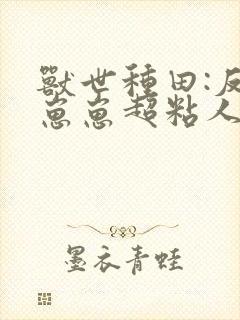 獸世種田:反
崽崽超粘人
墨衣青蛙